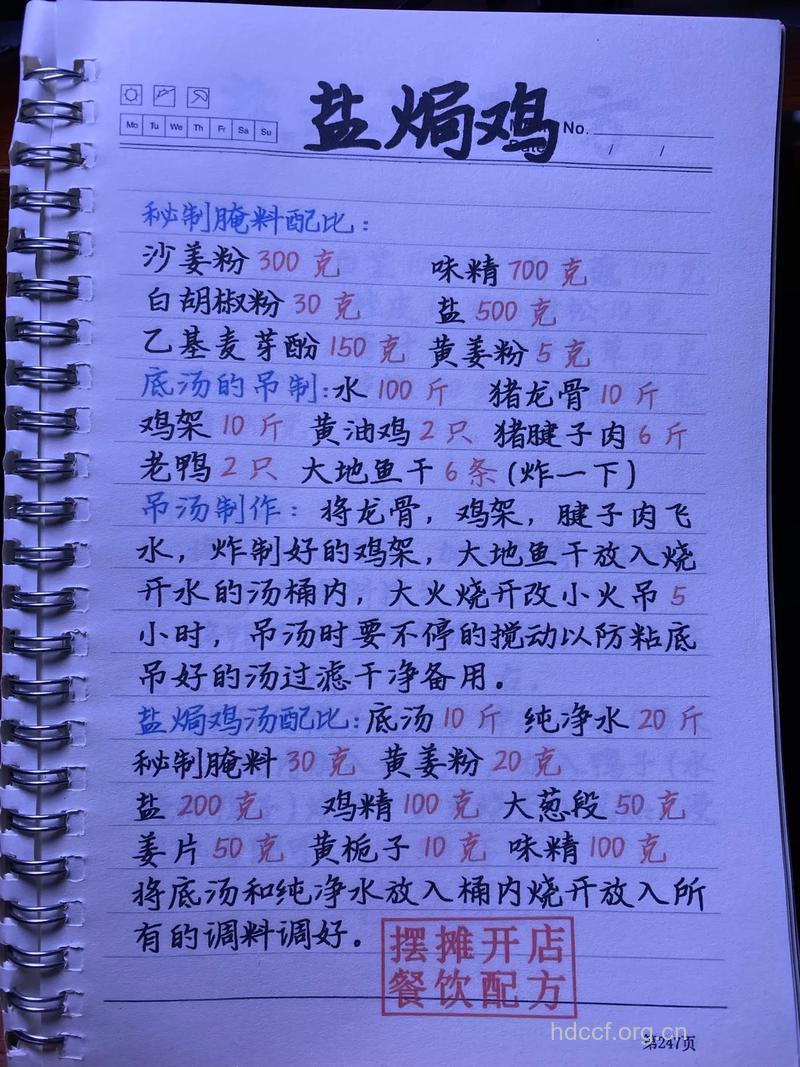 盐焗鸡
No.
Date / /
Mo Tu We Th Fr Sa Su
秘制腌料配比：
沙姜粉300克 味精700克
白胡椒粉30克 盐500克
乙基麦芽酚150克 黄姜粉5克
底汤的吊制:水100斤 猪龙骨10斤
鸡架10斤 黄油鸡2只 猪腱子肉6斤
老鸭2只 大地鱼干6条(炸一下)
吊汤制作：将龙骨，鸡架，腱子肉飞
水，炸制好的鸡架，大地鱼干放入烧
开水的汤桶内，大火烧开改小火吊5
小时，吊汤时要不停的搅动以防粘底
吊好的汤过滤干净备用。
盐焗鸡汤配比:底汤10斤 纯净水20斤
秘制腌料30克 黄姜粉20克
盐200克 鸡精100克 大葱段50克
姜片50克 黄栀子10克 味精100克
将底汤和纯净水放入桶内烧开放入所
有的调料调好。
摆摊开店
餐饮配方
hdccf.org.cn
第247页